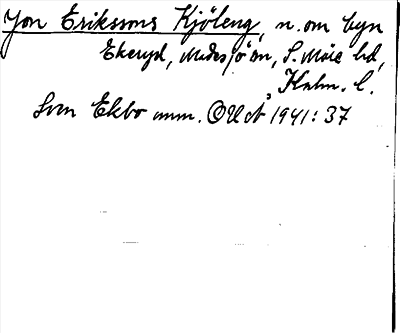 Jon Erikssons Kjöleng, n. om byn
Ekeryd, Madesjö sn, S. Möre hd,
Kalm. l.
Sven Ekbo mm. OUÅ, 1941: 37